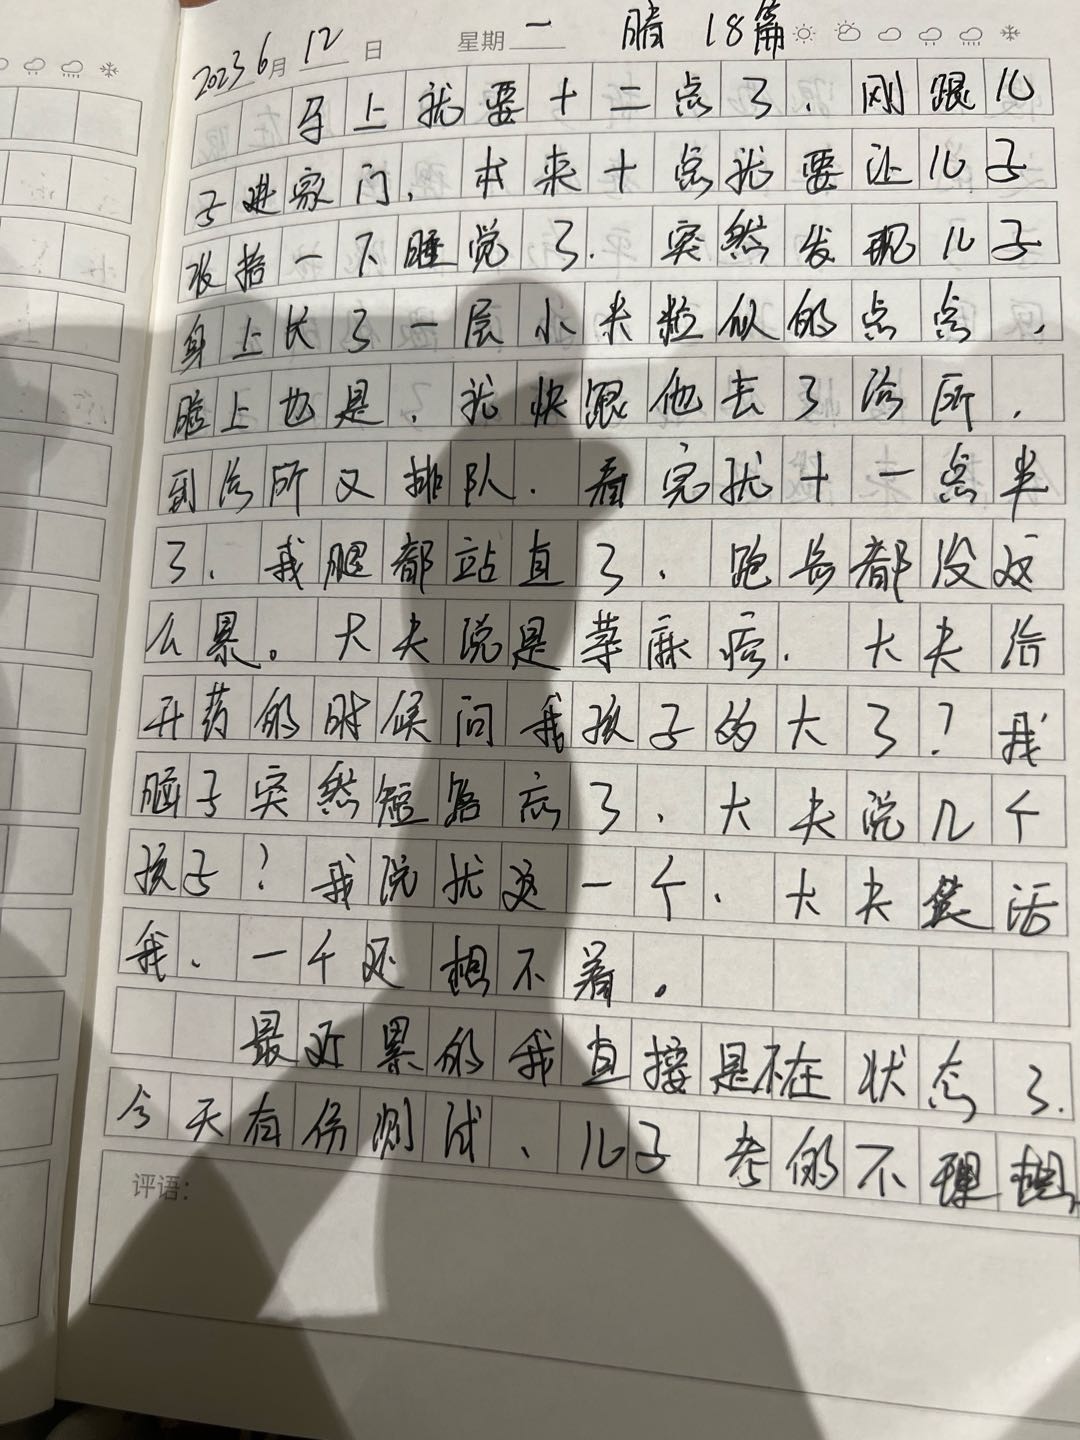 2023 6月 12 日 星期 一 晴 18篇
马上就要十二点了.刚跟儿
子进家门,本来十点就要让儿子
收拾一下睡觉了.突然发现儿子
身上长了一层小米粒似的点点,
脸上也是,我快跟他去了诊所,
到诊所又排队.看完就十一点半
了.我腿都站直了.跑步都没这
么累。大夫说是荨麻疹.大夫给
开药的时候问我孩子多大了?我
脑子突然短路忘了.大夫说几个
孩子?我说就这一个.大夫笑话
我.一个还想不着。
最近累的我直接是不在状态了.
今天有份测试、儿子考的不理想,
评语: